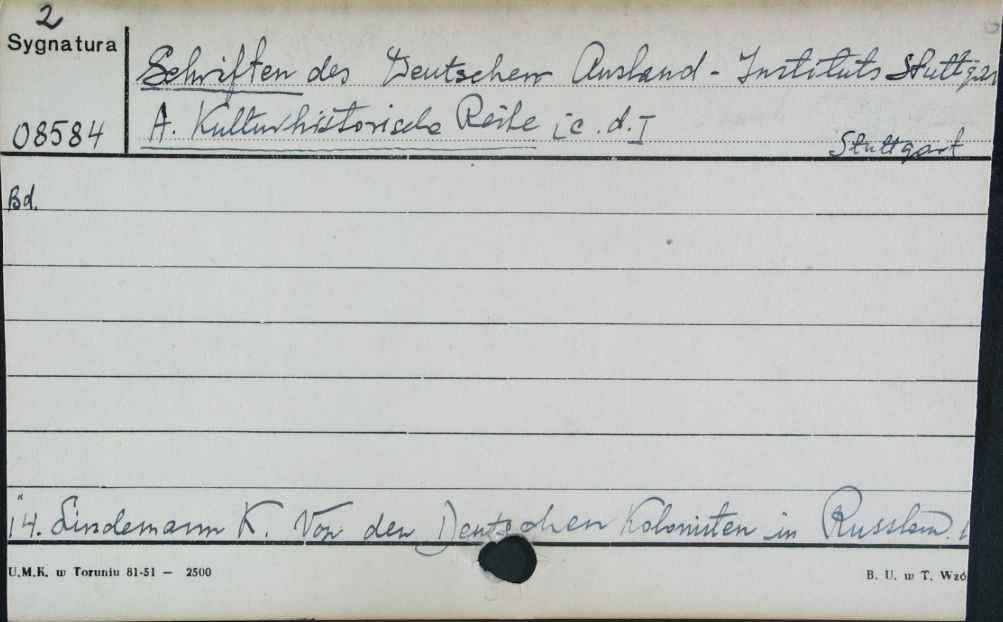 2
Sygnatura
08584
Schriften des Deutschen Ausland-Instituts Stuttgar
A. Kulturhistorische Reihe [c.d.]
Stuttgart
Bd.
14. Lindemann K. Von den Deutschen Kolonisten in Russlan.
U.M.K. w Toruniu 81-51 — 2500
B. U. w T. Wzó